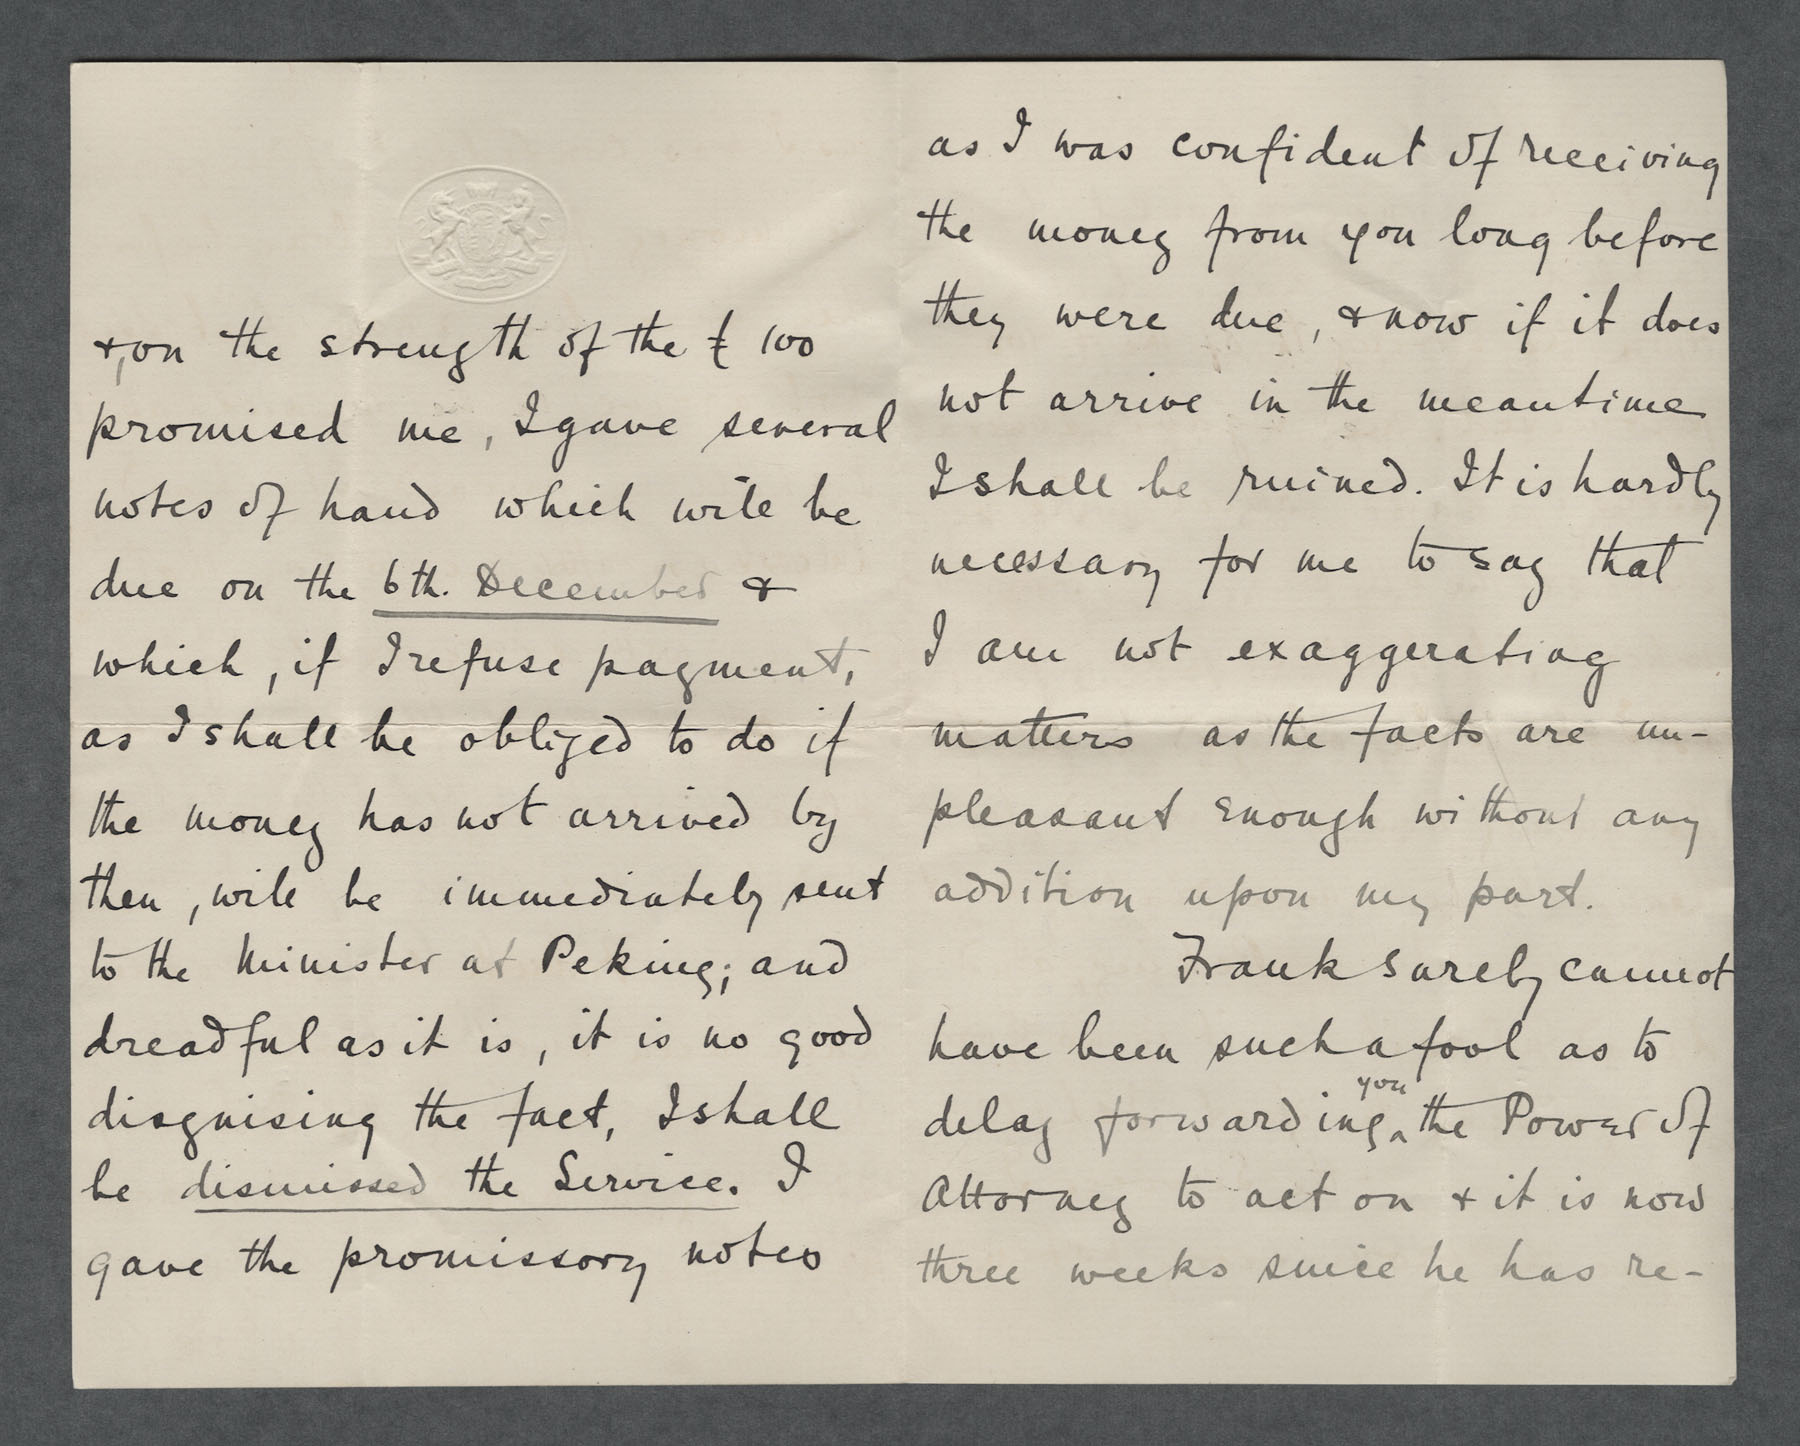 &, on the strength of the £ 100
promised me, I gave several
notes of hand which will be
due on the 6th. December &
which, if I refuse payment,
as I shall be obliged to do if
the money has not arrived by
then, will be immediately sent
to the Minister at Peking; and
dreadful as it is, it is no good
disguising the fact, I shall
be dismissed the Service. I
gave the promissory notes
as I was confident of receiving
the money from you long before
they were due, & now if it does
not arrive in the meantime
I shall be ruined. It is hardly
necessary for me to say that
I am not exaggerating
matters as the facts are un-
pleasant enough without any
addition upon my part.
Frank surely cannot
have been such a fool as to
delay forwarding ^you the Power of
Attorney to act on & it is now
three weeks since he has re-